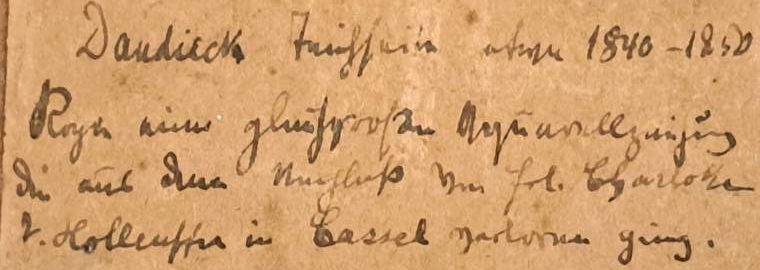 Dandieck etwa 1840-1850
Kopie einer gleichgroßen Aquarellzeichnung
die aus dem Nachlaß von Frl. Charlotte
v. Holleuffer in Cassel verloren ging.